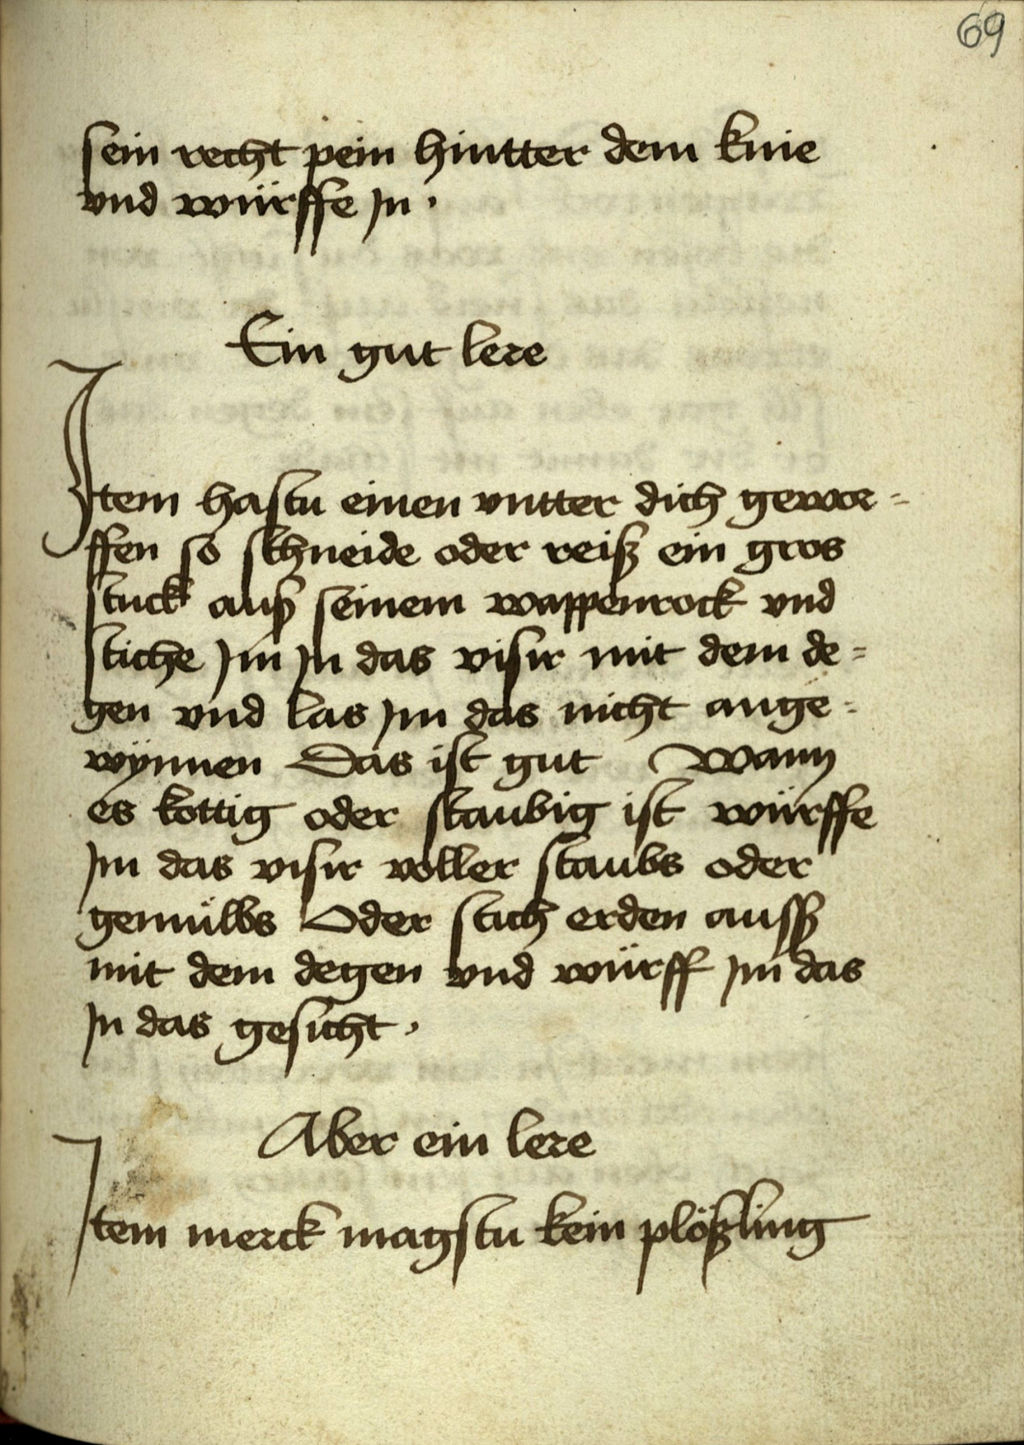 69
sein recht pein hintter dem knie
vnd würffe Jn .
Ein gut lere
Jtem hastu einen vntter dich gewor =
ffen so schneide oder reiß ein gros
stuck auß seinem wappenrock vnd
stiche Jm Jn das visir mit dem de =
gen vnd las Jm das nicht ange =
wÿnnen Das ist gut Wann
es kottig oder staubig ist würffe
Jm das visir voller staubs oder
gemülbs Oder stich erden aussß
mit dem degen vnd würff Jm das
Jn das gesicht .
Aber ein lere
Jtem merck magstu kein plößling